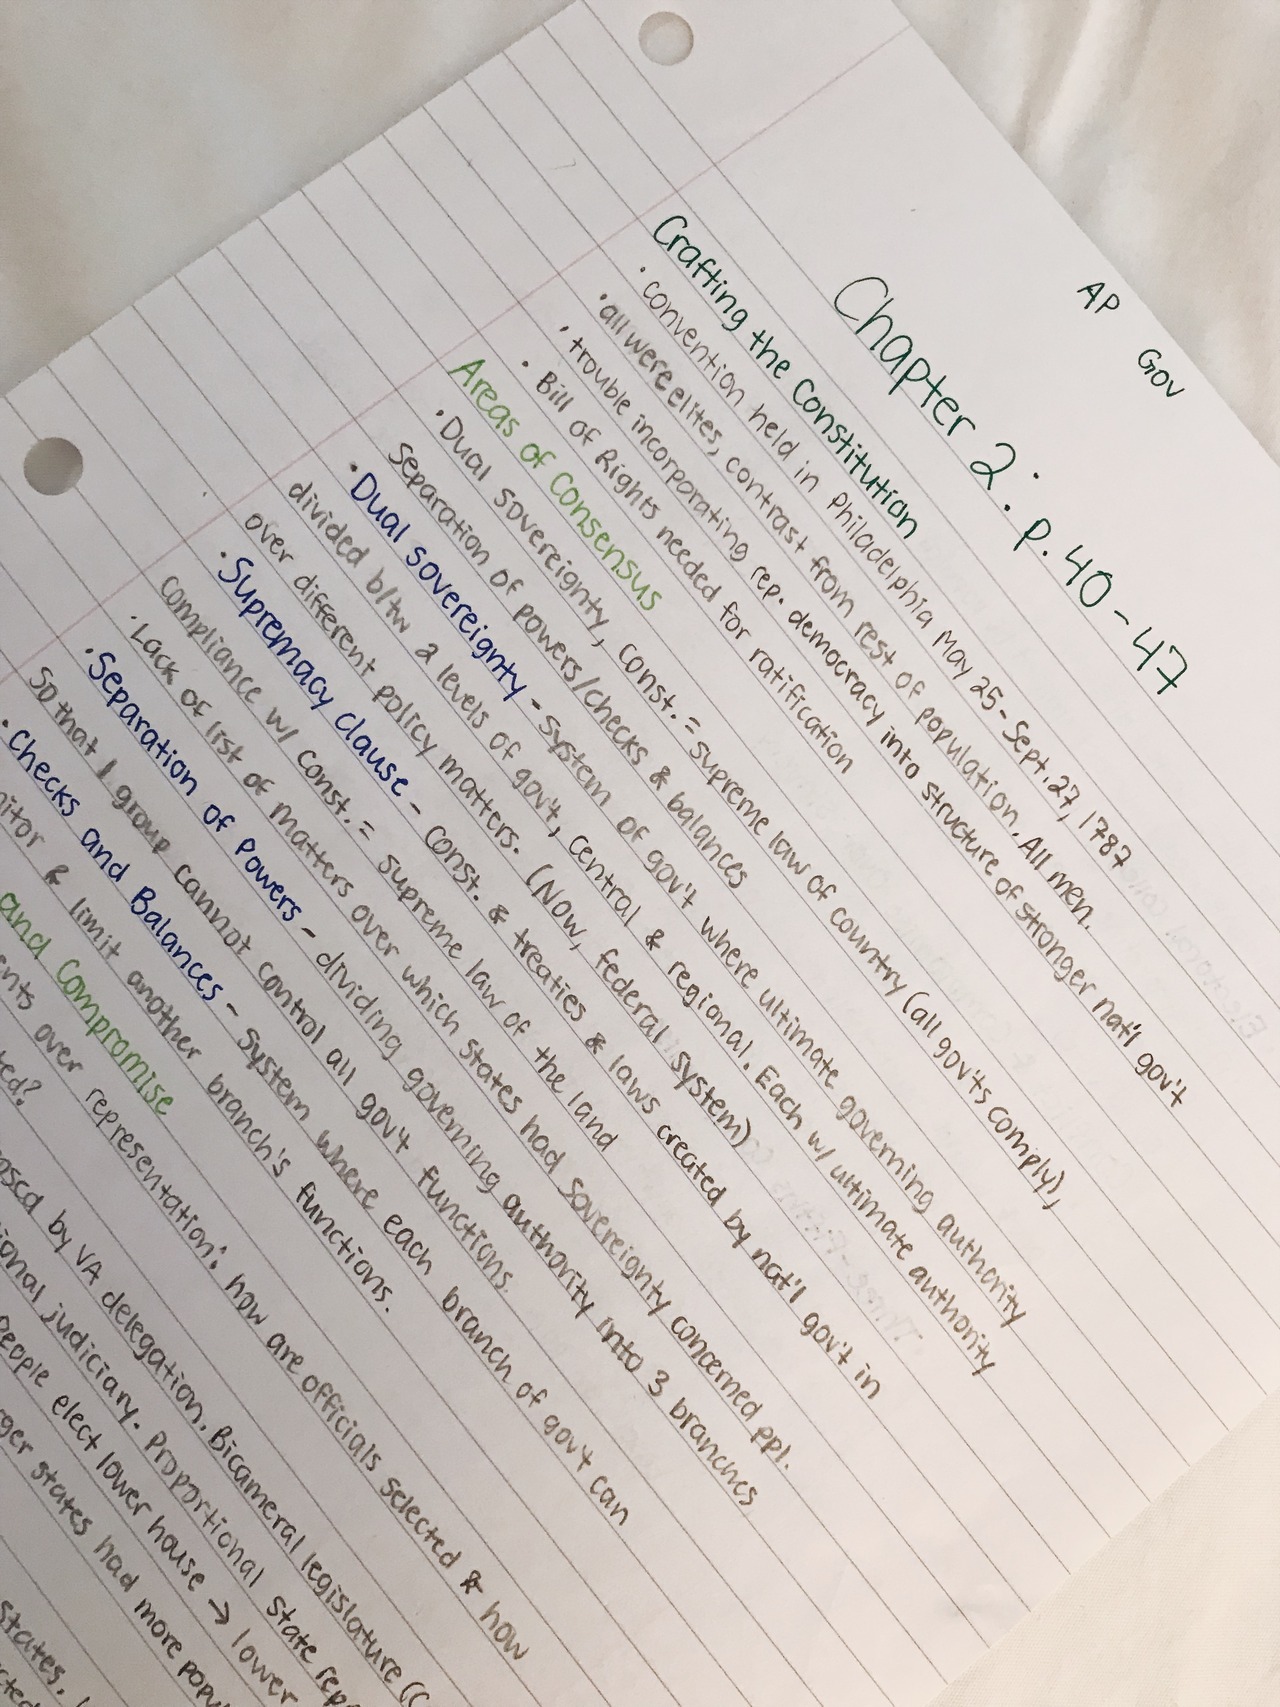 AP Gov
Chapter 2: p. 40-47
Crafting the Constitution
· convention held in Philadelphia May 25-Sept. 27, 1787
· all were elites, contrast from rest of population. All men.
· trouble incorporating rep. democracy into structure of stronger nat'l gov't
· Bill of Rights needed for ratification
Areas of Consensus
· Dual sovereignty, const. = supreme law of country (all gov'ts comply),
separation of powers/checks & balances
· Dual sovereignty - system of gov't where ultimate governing authority
divided b/tw 2 levels of gov't, central & regional. Each w/ ultimate authority
over different policy matters. (Now, federal system)
· Supremacy clause - const. & treaties & laws created by nat'l gov't in
compliance w/ const. = supreme law of the land
· Lack of list of matters over which states had sovereignty concerned ppl.
· Separation of Powers - dividing governing authority into 3 branches
so that 1 group cannot control all gov't functions.
· Checks and Balances - system where each branch of gov't can
& limit another branch's functions.
and Compromise
over representation: how are officials selected & how
by VA delegation. Bicameral legislature
judiciary. Proportional state
people elect lower house → lower
states had more
states.